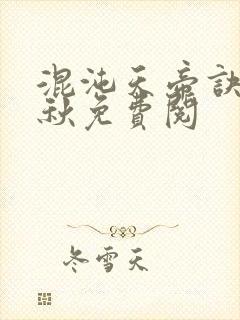 混沌天帝訣
秋免費閱
冬雪天